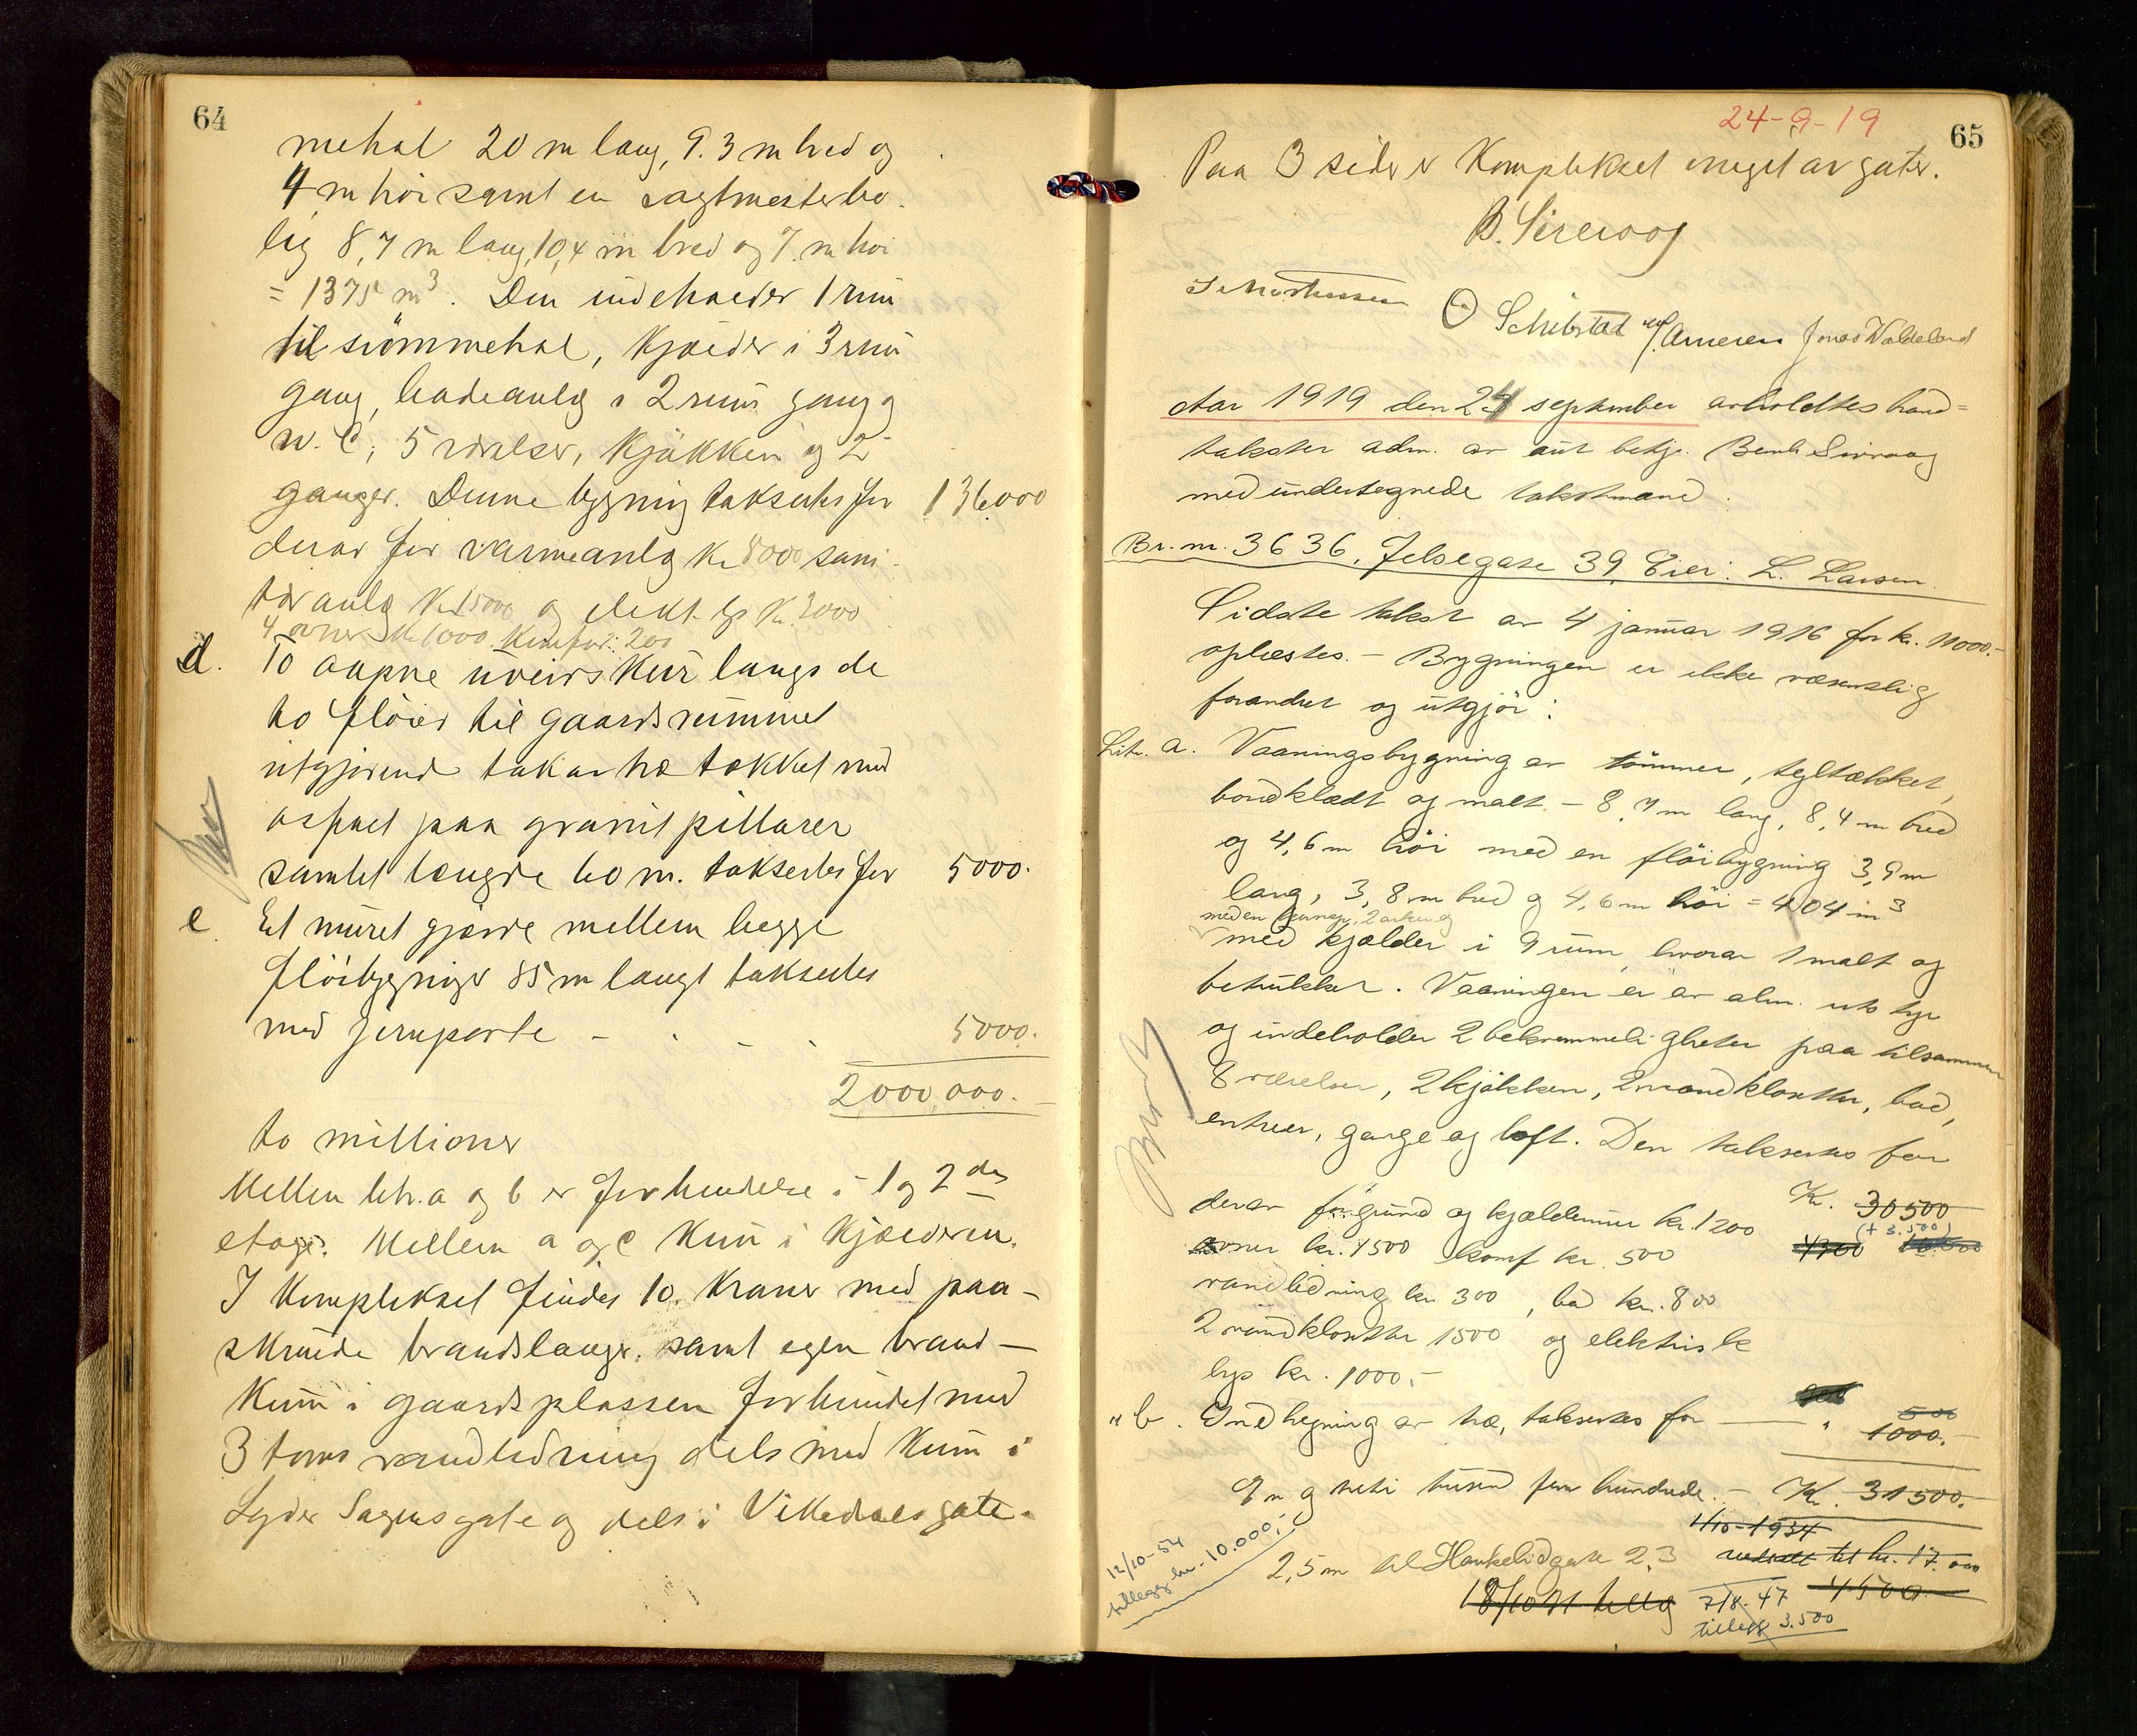 64
mehal 20 m lang, 9.3 m bred og
4 m høi samt en vagtmesterbo-
lig 8,7 m lang, 10,4 m bred og 7 m høi
= 1375 m³. Den indeholder 1 rum
til svömmehal, Kjælder i 3 rum
gang, badeanlæg i 2 rum gang og
W.C; 5 værelser, Kjøkken og 2
ganger. Denne bygning takseres for 136.000
derav for varmeanlæg Kr 8000 sani-
tæranlæg Kr 15000 og elekt. lys Kr. 3000
4 ovner Kr 1000. Komfur: 200
d. To aapne uveirs Kur langs de
to fløier til gaardsrummet
utgjørend tak av træ tækket med
asfalt paa granit pillarer
samlet længde 60 m. takseres for 5000.
e. Et muret gjærde mellem begge
fløibygniger 85 m langt takseres
med jernporte - . - . 5000.
2,000,000.
to millioner
Mellem litr. a og b er forbindelse i 1 og 2den
etage. Mellem a og c Kun i Kjælderen.
I Komplekset findes 10 Kraner med paa-
skruede brandslanger. samt egen brand-
Kum i gaardsplassen forbundet med
3 toms vandledning dels med Kum i
Lyder Sagens gate og dels i Vikedals gate.
24-9-19
65
Paa 3 sider er Komplekset omgit av gater.
B. Sirevaag
O Schibstad Jonas Valdeland
Aar 1919 den 24 september avholdtes brand=
takster adm. av aut betj. Bernh Sirevaag
med undertegnede takstmænd.
Br. nr. 3636, Jelsegate 39, Eier: L. Larsen.
Sidste takst av 4 januar 1916 for kr. 11000.-
oplæstes. - Bygningen er ikke væsentlig
forandret og utgjør:
Litr. a. Vaaningsbygning av tømmer, tegltækket,
bordklædt og malt - 8,7 m lang, 8,4 m bred
og 4,6 m høi med en fløibygning 3,9 m
lang, 3,8 m bred og 4,6 m høi = 404 m³
med en 2 arker og
med kjælder i 9 rum, hvorav 1 malt og
betrukket. Vaaningen er av alm. utstyr
og indeholder 2 bekvemmeligheter paa tilsammen
8 værelser, 2 kjøkken, 2 vandklosetter, bad,
entreer, gange og loft. Den takseres for
Kr. 30500
derav for grund og kjældermur kr. 1200 (+ 3.500)
ovner kr. 1500 komf kr. 500
vandledning kr 300, bad kr. 800
2 vandklosetter 1500 og elektrisk
lys kr. 1000.-
" b. Indhegning av træ, takseres for — " 500
1000.-
En og treti tusend fem hundrede. - Kr. 31500.-
1/10-1934
2,5 m til Haukelidgate 23 nedsatt til kr. 17.000
12/10-54
tillegg kr. 10.000,-
7/8-47 4500
tillegg 3.500